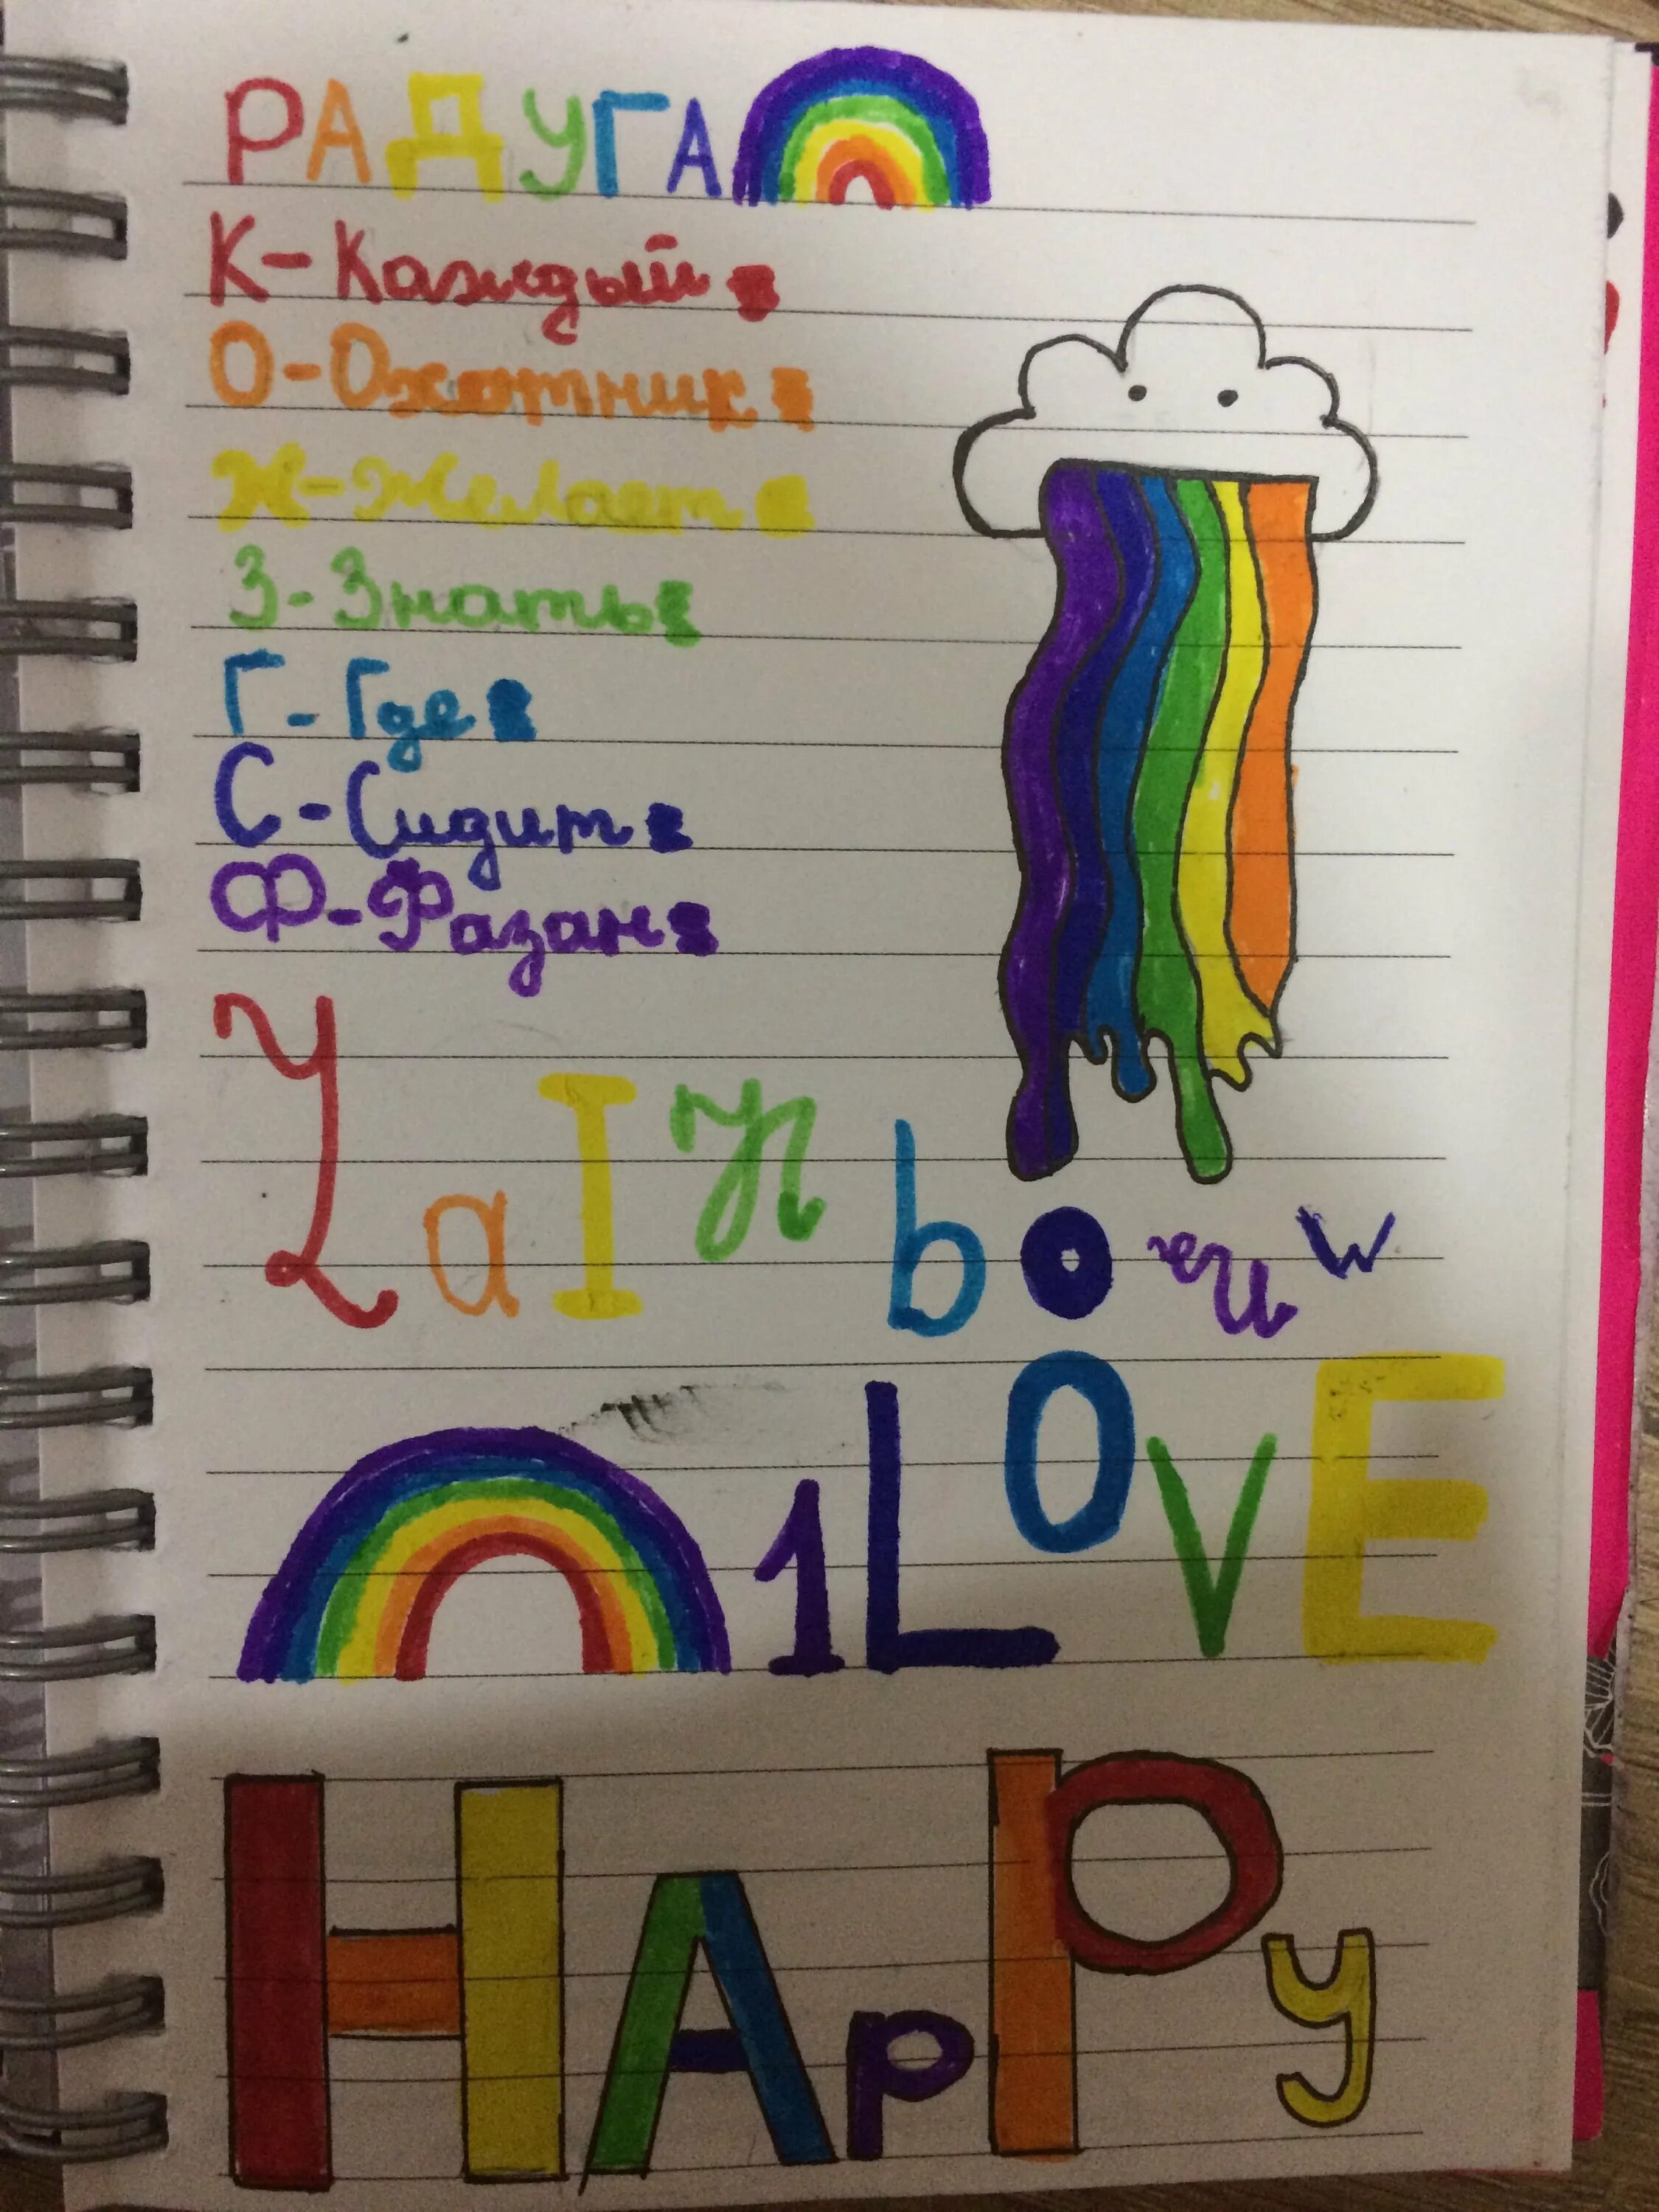 РАДУГА
К-Каждый
О-Охотник
Ж-Желает
З-Знать
Г-Где
С-Сидит
Ф-Фазан
aIn bow
1 LOVE
HAppy